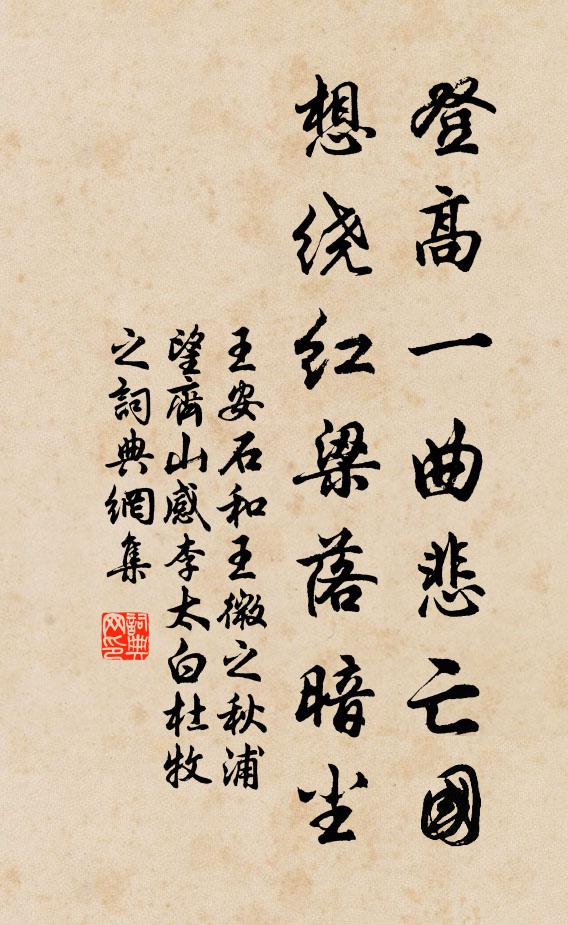 登高一曲悲亡國
想绕红梁落暗尘
王安石和王微之秋浦
望齊山感李太白杜牧
之詞典網集
詞典
网印